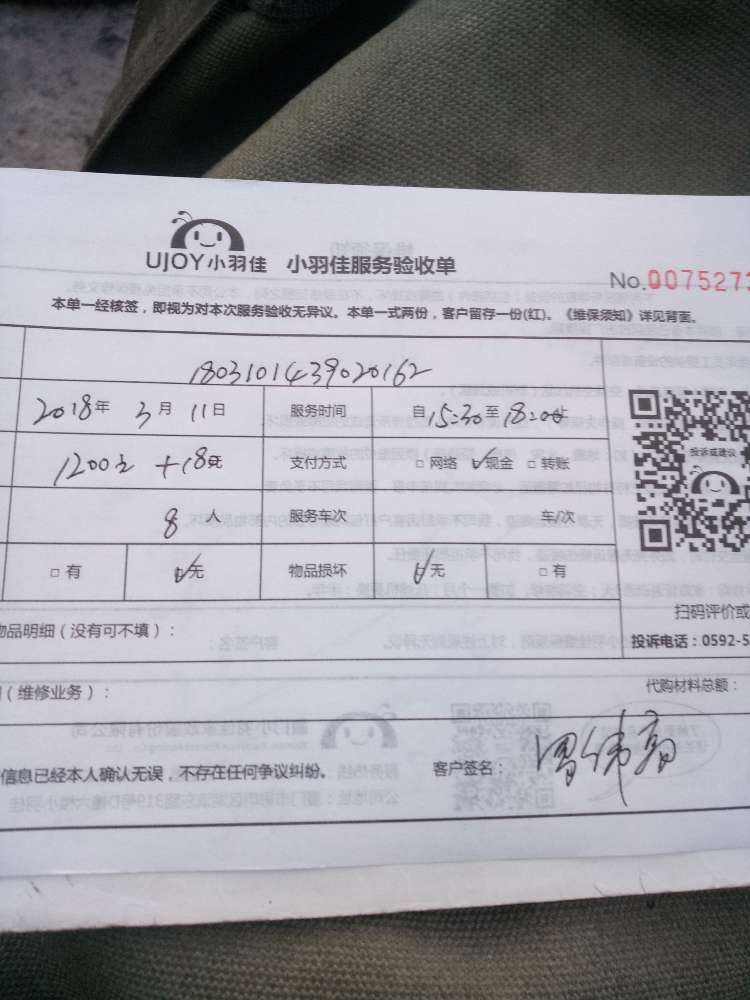 UJOY小羽佳 小羽佳服务验收单
No.0075273
本单一经核签，即视为对本次服务验收无异议。本单一式两份，客户留存一份(红)。《维保须知》详见背面。
1803101439020162
2018年 3月 11日 服务时间 自15:30至18:00止
1200元 +18元 支付方式 □网络 ☑现金 □转账
投诉或建议
8人 服务车次 车/次
□有 ☑无 物品损坏 ☑无 □有
扫码评价或
物品明细（没有可不填）：
投诉电话：0592-5
（维修业务）： 代购材料总额：
信息已经本人确认无误，不存在任何争议纠纷。 客户签名：